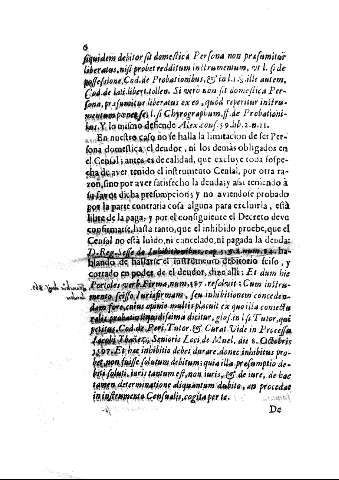 6
siquidem debitor sit domestica Persona non præsumitur
liberatus, nisi probet redditum instrumentum, vt l. si de
possessione, Cod. de Probationibus, & in l. ille autem,
Cod. de lati. libert. tollen. Si vero non sit domestica Per-
sona, præsumitur liberatus ex eo, quòd reperitur instru-
mentum penes l. si Chyrographum, ff. de Probationi-
bus. Y lo mismo defiende Alex. conf. 59. lib. 2. n. 11.
En nuestro caso no se halla la limitacion de ser Per-
sona domestica, el deudor, ni los demàs obligados en
el Censal; antes es de calidad, que excluye toda sospe-
cha de aver tenido el instrumento Censal, por otra ra-
zon, sino por aver satisfecho la deuda; y assi teniendo à
su favor dicha presumpcion, y no aviendose probado
por la parte contraria cosa alguna para excluirla, està
libre de la paga; y por el consiguiente el Decreto deve
confirmarse, hasta tanto, que el inhibido pruebe, que el
Censal no està luido, ni cancelado, ni pagada la deuda:
D. Reg. Sesse de Inhibitionibus, cap.
hablando de hallarse el instrumento debitorio sciso, y
cortado en poder de el deudor, dize alli: Et dum hic
Portoles, verb. Firma, num. 397. resolvit: Cum instru-
mento scisso, Iurisfirmam, seu inhibitionem conceden-
dam fore, cuius opinio multis placuit ex quo ilia coniectu
ralis probatio liquidissima dicitur, glos. in l. si Tutor, qui
petitus, Cod. de Peri. Tutor. & Curat. Vide in Processu
Iacobi Ybañez, Senioris Loci de Muel, die 8. Octobris
1597. Et hæc inhibitio debet durare, donec inhibitus pro-
bet non fuisse solutum debitum; quia illa præsumptio de-
biti soluti, iuris tantum est, non iuris, & de iure, de hac
tamen determinatione aliquantum dubito, an procedat
in instrumento Censualis, cogita per te.
De